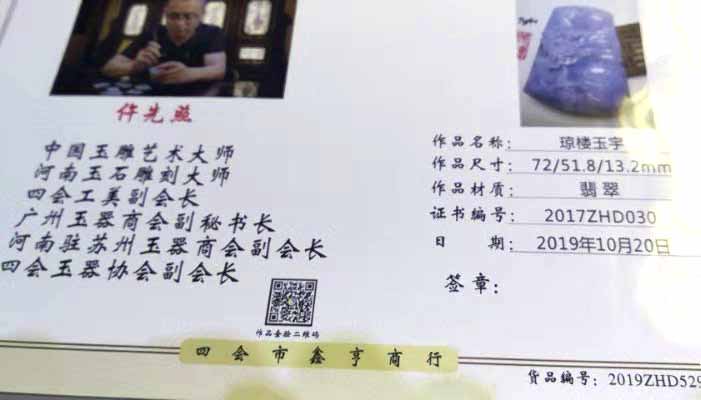 仵先燕
中国玉雕艺术大师
河南玉石雕刻大师
四会工美副会长
广州玉器商会副秘书长
河南驻苏州玉器商会副会长
四会玉器协会副会长
作品查验二维码
作品名称: 琼楼玉宇
作品尺寸: 72/51.8/13.2mm
作品材质: 翡翠
证书编号: 2017ZHD030
日 期: 2019年10月20日
签章:
四会市鑫亨商行
货品编号: 2019ZHD529